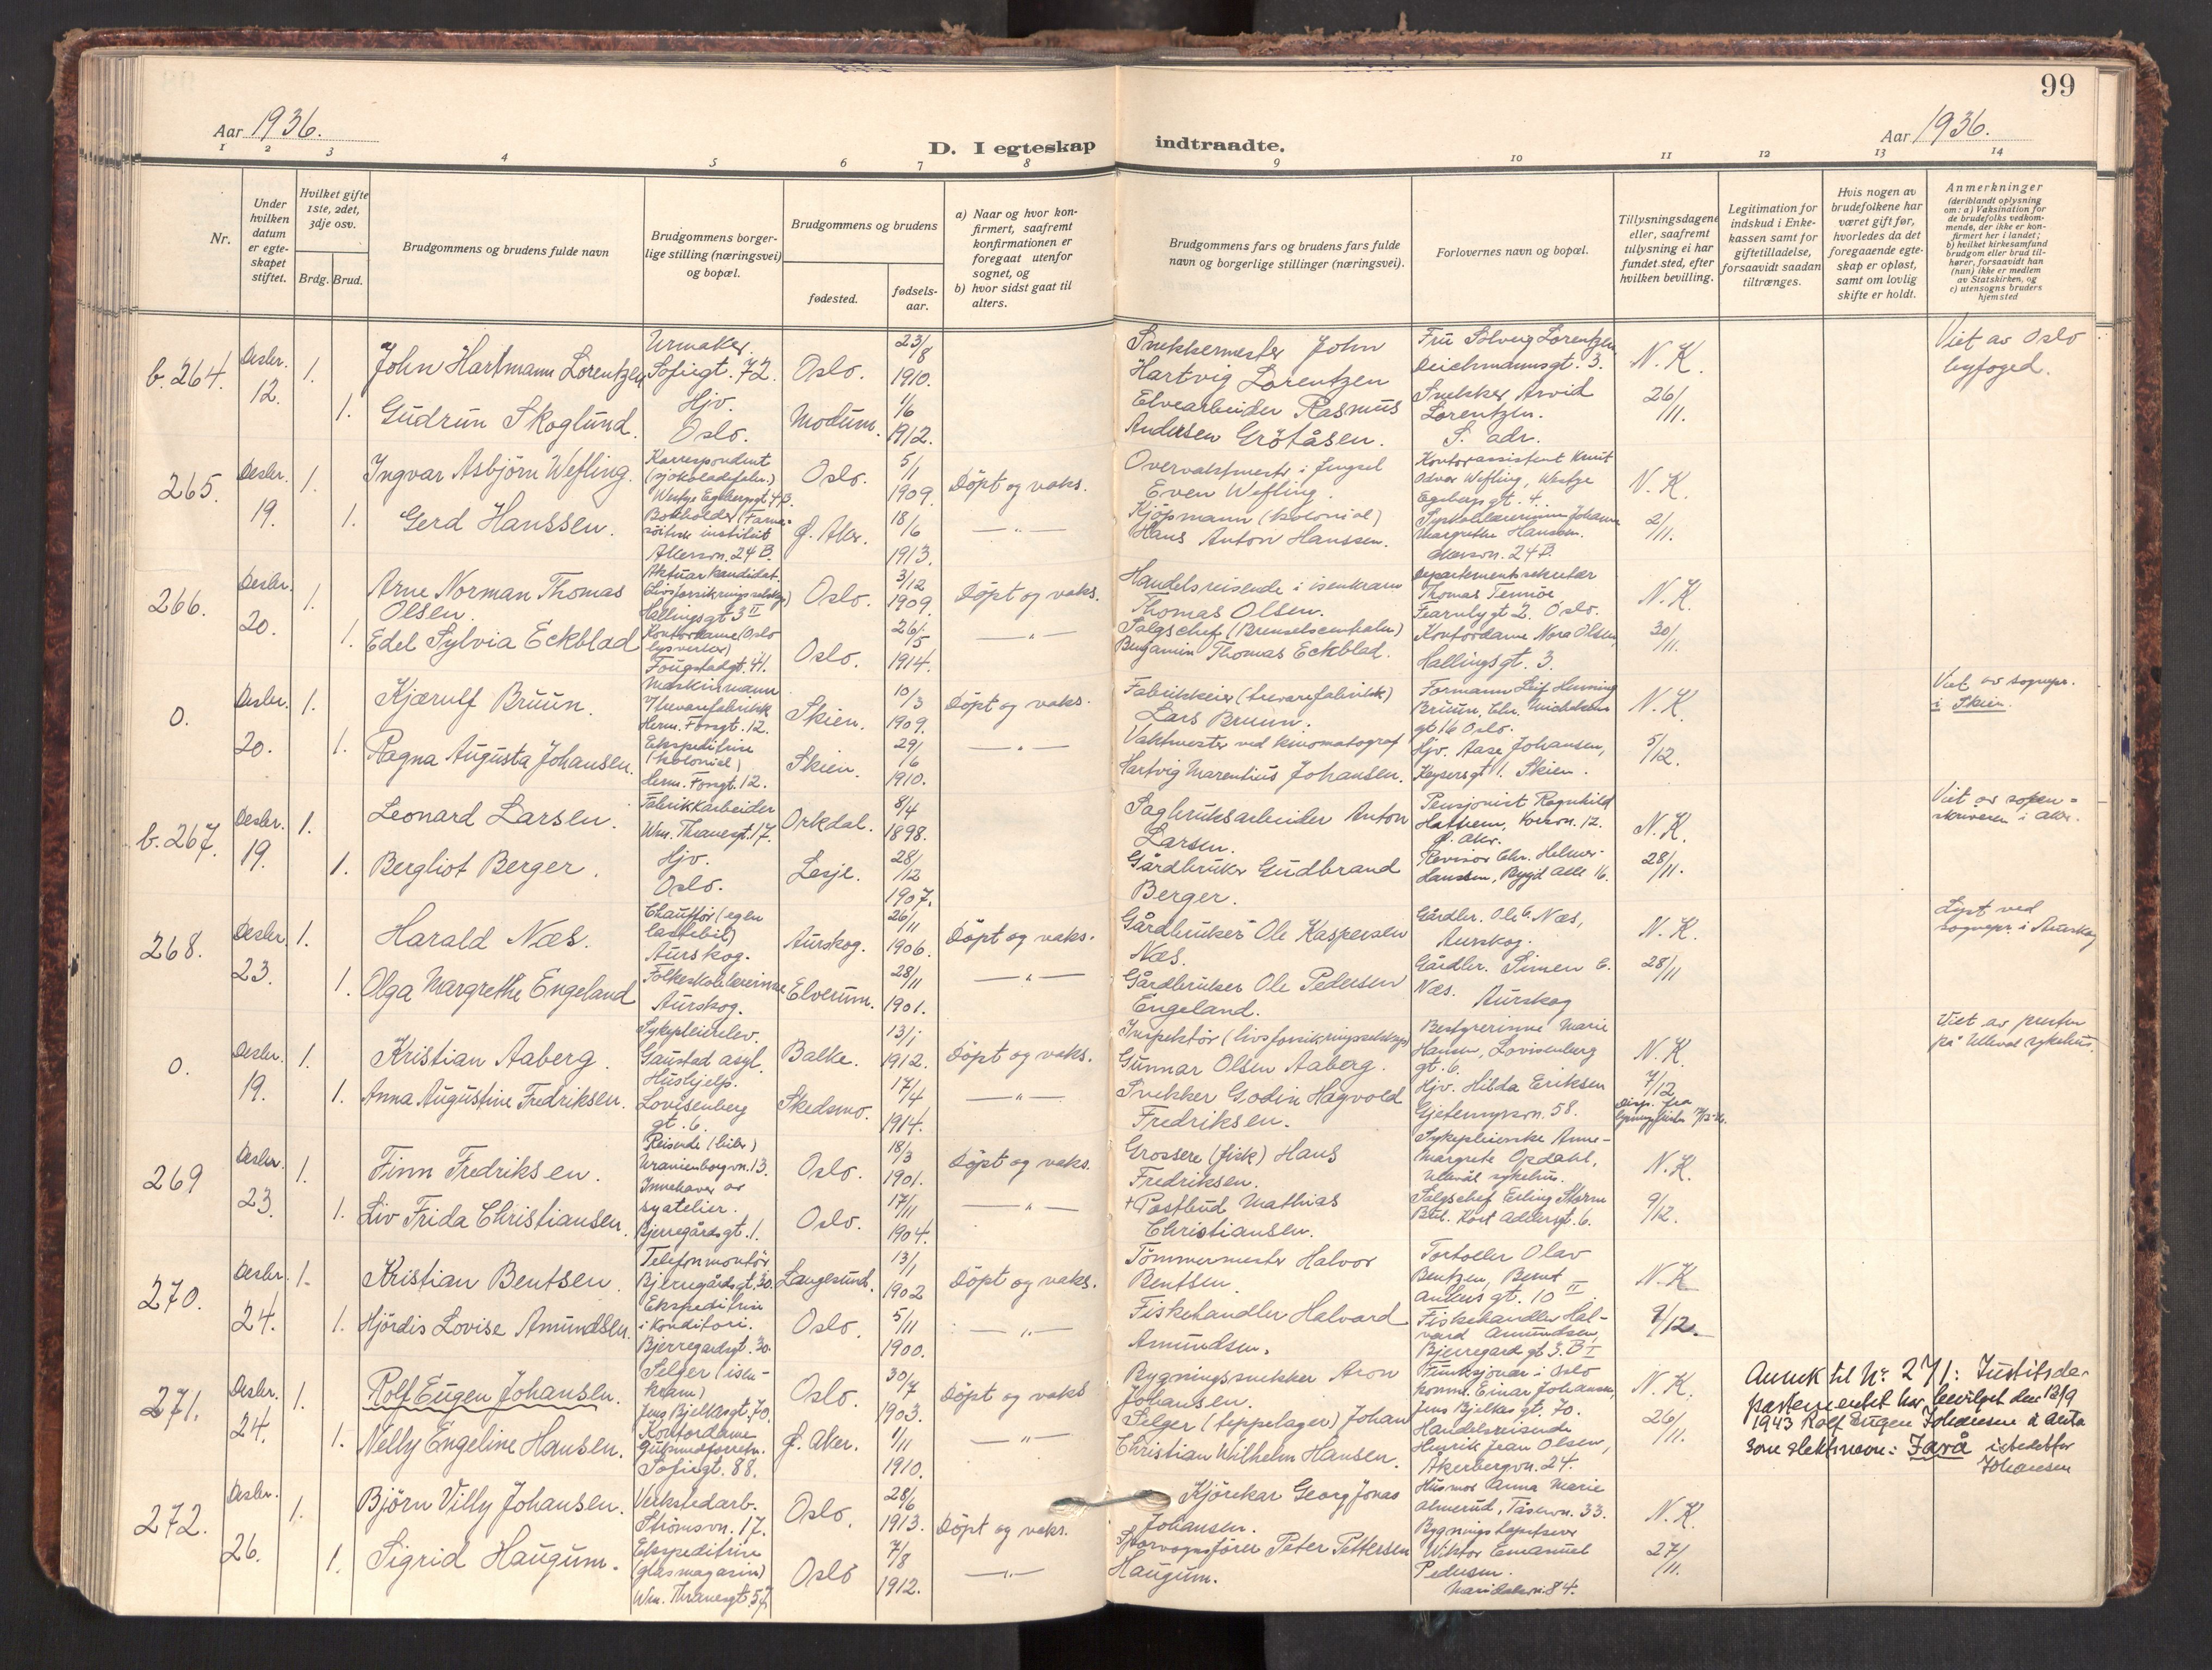 99
Aar 1936.
Aar 1936.
D. I egteskap indtraadte.
1 2 3 4 5 6 7 8 9 10 11 12 13 14
Nr.
Under hvilken datum er egte-skapet stiftet.
Hvilket gifte 1ste, 2det, 3dje osv.
Brdg. Brud.
Brudgommens og brudens fulde navn
Brudgommens borger-lige stilling (næringsvei) og bopæl.
Brudgommens og brudens
fødested.
fødsels-aar.
a) Naar og hvor kon-firmert, saafremt konfirmationen er foregaat utenfor sognet, og
b) hvor sidst gaat til alters.
Brudgommens fars og brudens fars fulde navn og borgerlige stillinger (næringsvei).
Forlovernes navn og bopæl.
Tillysningsdagene eller, saafremt tillysning ei har fundet sted, efter hvilken bevilling.
Legitimation for indskud i Enke-kassen samt for giftetilladelse, forsaavidt saadan tiltrænges.
Hvis nogen av brudefolkene har været gift før, hvorledes da det foregaaende egte-skap er opløst, samt om lovlig skifte er holdt.
Anmerkninger
(deriblandt oplysning om: a) Vaksination for de brudefolks vedkom-mende, der ikke er kon-firmert her i landet; b) hvilket kirkesamfund brudgom eller brud til-hører, forsaavidt han (hun) ikke er medlem av Statskirken, og c) utensogns bruders hjemsted
b. 264. Desbr. 12. 1. John Hartmann Lorentzen
Urmaker. Sofiegt. 72. Oslo. 23/8 1910.
Snekkermester John Hartvig Lorentzen
Fru Solveig Lorentzen Deichmannsgt. 3. N. K. 26/11.
Viet av Oslo byfoged.
1. Gudrun Skoglund. Hjv. Oslo. Modum. 1/6 1912.
Elvearbeider Rasmus Andersen Grötåsen.
Snekker Arvid Lorentzen. S. adr.
265. Desbr. 19. 1. Ingvar Asbjørn Wefling.
Korrespondent Oslo. 5/1 1909. Döpt og vaks.
Overvaktmester i fengsel Even Wefling.
Kontorassistent Knut Odvar Wefling, Westye Egebergsgt. 4. N. K. 2/11.
1. Gerd Hanssen. Akersvn. 24 B. Ø. Aker. 18/6 1913. — " —
Kjöpmann (kolonial) Hans Anton Hanssen.
Margrethe Hanssen. Akersvn. 24 B.
266. Desbr. 20. 1. Arne Norman Thomas Olsen.
Aktuarkandidat. Hallingsgt 3 II Oslo. 3/12 1909. Döpt og vaks.
Handelsreisende i isenkram Thomas Olsen.
Departementssekretær Thomas Tennöe Fearnleygt 2. Oslo. N. K. 30/11.
1. Edel Sylvia Eckblad Kontordame (Oslo lysverker) Fougstadgt. 41. Oslo. 26/5 1914. — " —
Salgschef (Brenselscentralen) Benjamin Thomas Eckblad.
Kontordame Nora Olsen, Hallingsgt. 3.
0. Desbr. 20. 1. Kjærulf Bruun.
Maskinmann v/trevarefabrikk Herm. Fossgt. 12. Skien. 10/3 1909. Döpt og vaks.
Fabrikkeier (trevarefabrikk) Lars Bruun.
Formann Leif Henning Bruun, Chr. Michelsens gt 16 Oslo. N. K. 5/12.
Viet av sognepr. i Skien.
1. Ragna Augusta Johansen. Ekspeditrise (kolonial) Herm. Fossgt. 12. Skien. 29/6 1910. — " —
Vaktmester ved kinomatograf Hartvig Marentius Johansen.
Hjv. Aase Johansen, Keysersgt 1. Skien.
b. 267. Desbr. 19. 1. Leonard Larsen.
Fabrikkarbeider Wm. Thranesgt. 17. Orkdal. 8/4 1898.
Sagbruksarbeider Anton Larsen.
Pensjonist Ragnhild 12. Ø. Aker. N. K. 28/11.
Viet av soren=skriveren i Aker.
1. Bergliot Berger. Hjv. Oslo. Lesje. 28/12 1907.
Gårdbruker Gudbrand Berger.
Revisor Chr. Helmer-Hanssen, Bygd. Alle 16.
268. Desbr. 23. 1. Harald Næs.
Chauffør (egen lastebil) Aurskog. Aurskog. 26/11 1906. Döpt og vaks.
Gårdbruker Ole Kaspersen Næs.
Gårdbr. Ole C. Næs, Aurskog. N. K. 28/11
Lyst ved sognepr. i Aurskog
1. Olga Margrethe Engeland Folkeskolelærerinne Aurskog. Elverum. 28/11 1901. — " —
Gårdbruker Ole Pedersen Engeland.
Gårdbr. Simen C. Næs. Aurskog
0. Desbr. 19. 1. Kristian Aaberg.
Sykepleierelev. Gaustad asyl. Balke. 13/1 1912. Döpt og vaks.
Inspektör (livsforsikringsselskap) Gunnar Olsen Aaberg.
Bestyrerinne Marie Hansen, Lovisenberg gt. 6. N. K. 7/12
Viet av presten på Ullevål sykehus.
1. Anna Augustine Fredriksen. Hushjelp. Lovisenberg gt. 6. Skedsmo. 17/4 1914. — " —
Snekker Godin Hagvold Fredriksen.
Hjv. Hilda Eriksen Gjetemyrsvn. 58.
269 Desbr. 23. 1. Finn Fredriksen.
Reisende (biler) Uranienborgvn. 13. Oslo. 18/3 1901. Döpt og vaks.
Grossere (fisk) Hans Fredriksen.
Sykepleierske Anne-Margrete Opdahl, Ullevål sykehus. N. K. 9/12.
1. Liv Frida Christiansen. Innehaver av syatelier. Bjerregårdsgt. 1. Oslo. 17/11 1904. — " —
+ Postbud Mathias Christiansen.
Salgschef Erling Storm Kort Adelersgt. 6.
270. Desbr. 24. 1. Kristian Bentsen
Telefonmontör Bjerregårdsgt. 30. Langesund. 13/1 1902 Döpt og vaks.
Tömmermester Halvor Bentsen.
Olav Bentzen, Bernt Ankers gt. 10 II N. K. 9/12.
1. Hjördis Lovise Amundsen. Ekspeditrise i konditori. Bjerregårdsgt. 30. Oslo. 5/11 1900. — " —
Fiskehandler Halvard Amundsen.
Fiskehandler Hal-vard Amundsen, Bjerregårdgt 3. B I
271. Desbr. 24. 1. Rolf Eugen Johansen.
Selger (isen-kram) Jens Bjelkesgt. 70. Oslo. 30/7 1903. Döpt og vaks
Bygningssnekker Aron Johansen.
Funksjonær i Oslo komm. Einar Johansen, Jens Bjelkes gt. 70. N. K. 26/11.
Anmk til Nr. 271: Justitsde-
partementet har bevilget den 13/9
1943 Rolf Eugen Johansen å anta
som slektsnavn: Javå istedetfor
Johansen
1. Nelly Engeline Hansen. Kontordame Sofiegt. 88. Ø. Aker. 1/11 1910. — " —
Selger (teppelager) Johan Christian Wilhelm Hansen.
Handelsreisende Henrik Jean Olsen, Akerbergvn. 24.
272. Desbr. 26. 1. Björn Villy Johansen.
Verkstedarb. Strömsvn. 17. Oslo. 28/6 1913. Döpt og vaks.
Kjörekar Georg Jonas Johansen.
Husmor Anna Marie Almerud, Tåsenvn. 33. N. K. 27/11.
1. Sigrid Haugum. Ekspeditrise (glasmagasin) Wm. Thranesgt. 57. Oslo 7/8 1912. — " —
Sporvognsförer Peter Pettersen Haugum.
Wiktor Emanuel Pedersen. Maridalsvn. 84.